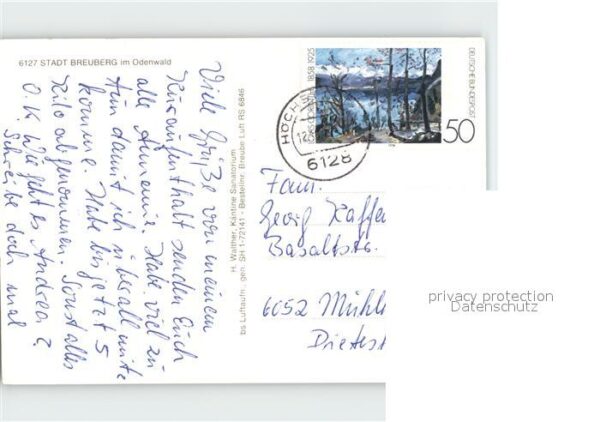 6127 STADT BREUBERG im Odenwald
Viele Grüße von meinem
Kuraufenthalt senden Euch
alle Annemie. Habe viel zu
tun damit ich überall mite
komme. Habe bis jetzt 5
Kilo abgenommen. Sonst alles
O.K. Wie geht es Andrea?
Schreibe doch mal
H. Walther, Kantine Sanatorium
bs Luftaufn., gen. SH 1-72141 - Bestellnr. Breube Luft RS 6846
1858-1925
DEUTSCHE BUNDESPOST
50
HÖCHS
12
6128
Fam.
Georg Kaffe
Basaltstr.
6052 Mühl
Dietes
privacy protection
Datenschutz